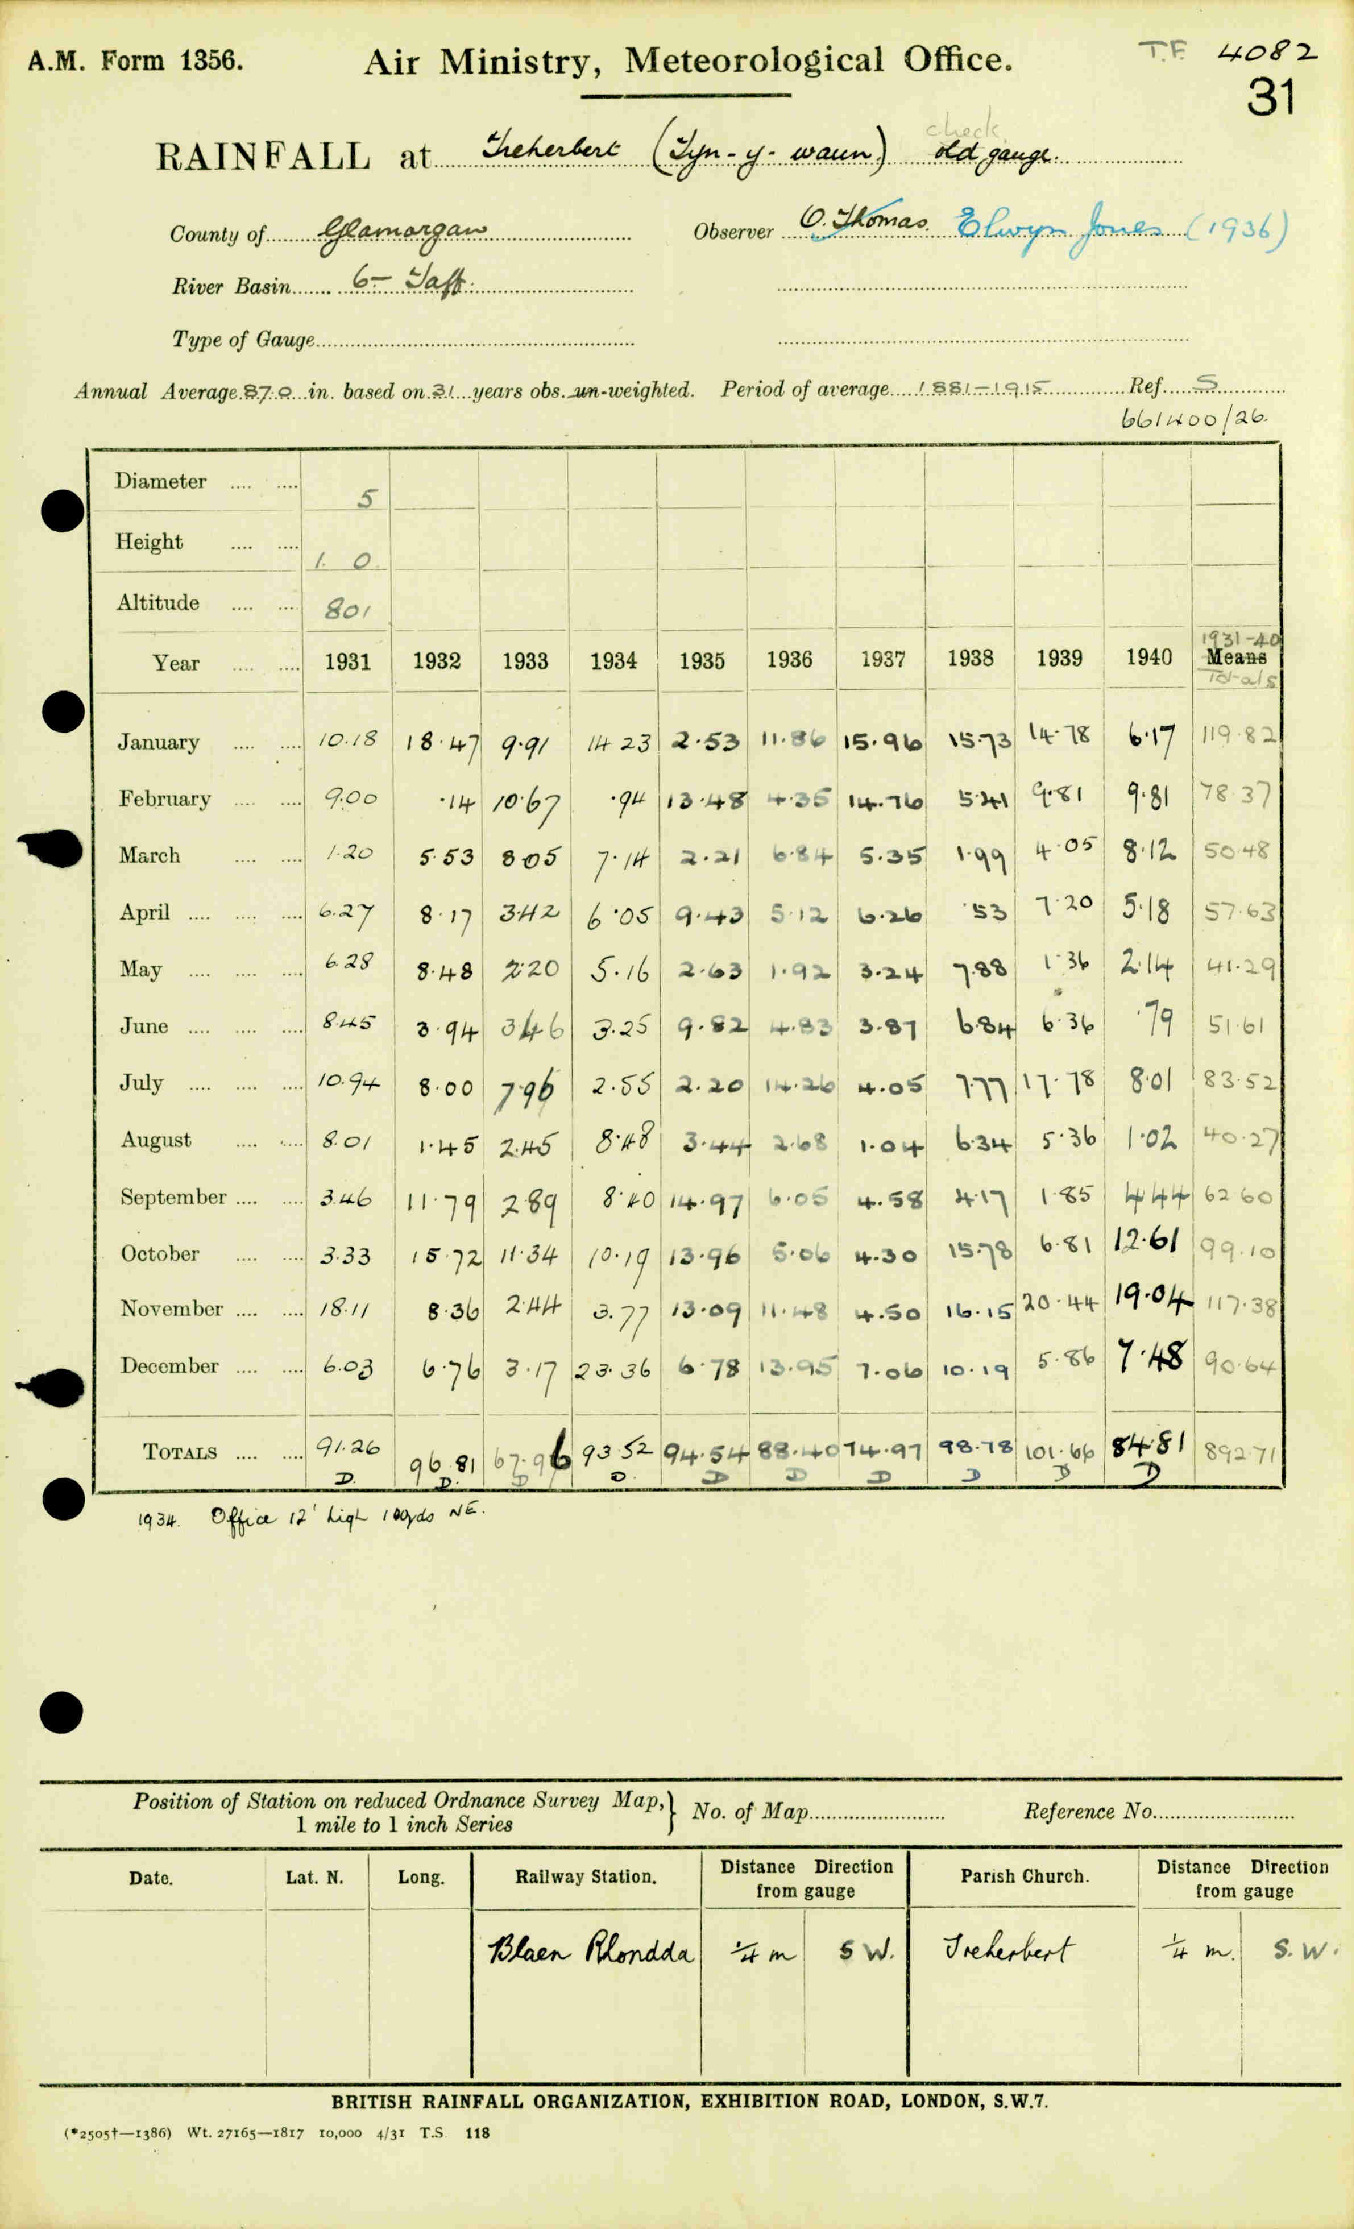 A.M. Form 1356. Air Ministry, Meteorological Office. T.F. 4082
31
check
RAINFALL at Treherbert (Tyn-y-waun) old gauge.
County of Glamorgan Observer O. Thomas. Elwyn Jones (1936)
River Basin 6- Taff.
Type of Gauge
Annual Average 87.0 in. based on 31 years obs. un-weighted. Period of average 1881-1915 Ref. S
661400/26.
Diameter 5
Height 1. 0.
Altitude 801
1931-40
Year 1931 1932 1933 1934 1935 1936 1937 1938 1939 1940 Means
Totals
January 10.18 18.47 9.91 14 23 2.53 11.86 15.96 15.73 14.78 6.17 119.82
February 9.00 .14 10.67 .94 13.48 4.35 14.76 5.41 9.81 9.81 78.37
March 1.20 5.53 8 05 7.14 2.21 6.84 5.35 1.99 4.05 8.12 50.48
April 6.27 8.17 3.42 6.05 9.43 5.12 6.26 .53 7.20 5.18 57.63
May 6.28 8.48 2.20 5.16 2.63 1.92 3.24 7.88 1.36 2.14 41.29
June 8.45 3.94 3.46 3.25 9.82 4.83 3.87 6.84 6.36 .79 51.61
July 10.94 8.00 7.96 2.55 2.20 14.26 4.05 7.77 17.78 8.01 83.52
August 8.01 1.45 2.45 8.48 3.44 2.68 1.04 6.34 5.36 1.02 40.27
September 3.46 11.79 2.89 8.40 14.97 6.05 4.58 4.17 1.85 4.44 62 60
October 3.33 15.72 11.34 10.19 13.96 5.06 4.30 15.78 6.81 12.61 99.10
November 18.11 8.36 2.44 3.77 13.09 11.48 4.50 16.15 20.44 19.04 117.38
December 6.03 6.76 3.17 23.36 6.78 13.95 7.06 10.19 5.86 7.48 90.64
TOTALS 91.26 96.81 67.96 93.52 94.54 88.40 74.97 98.78 101.66 84.81 892.71
D. D. D D. D D D D D D
1934. Office 12' high 100yds NE.
Position of Station on reduced Ordnance Survey Map, } No. of Map Reference No.
1 mile to 1 inch Series
Date. Lat. N. Long. Railway Station. Distance Direction Parish Church. Distance Direction
from gauge from gauge
Blaen Rhondda 1/4 m S W. Treherbert 1/4 m. S. W.
BRITISH RAINFALL ORGANIZATION, EXHIBITION ROAD, LONDON, S.W.7.
(*2505†—1386) Wt. 27165—1817 10,000 4/31 T.S. 118